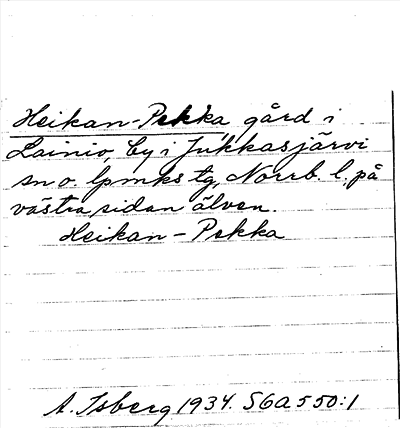 Heikan-Pekka gård i
Lainio, by i Jukkasjärvi
sn o. lpmks tg, Norrb. l. på
västra sidan älven.
Heikan-Pekka
A. Isberg 1934. S6a550:1